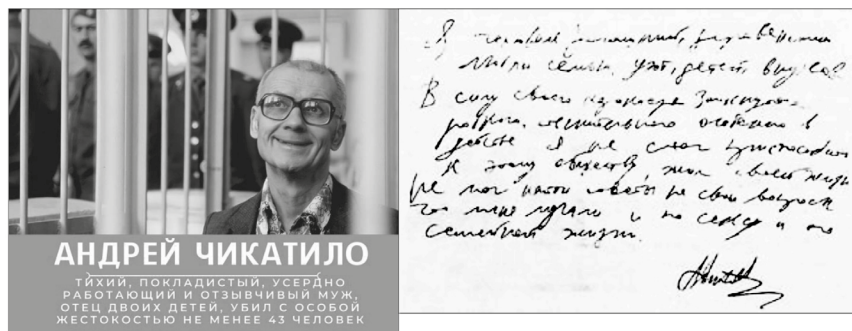 АНДРЕЙ ЧИКАТИЛО
ТИХИЙ, ПОКЛАДИСТЫЙ, УСЕРДНО
РАБОТАЮЩИЙ И ОТЗЫВЧИВЫЙ МУЖ,
ОТЕЦ ДВОИХ ДЕТЕЙ, УБИЛ С ОСОБОЙ
ЖЕСТОКОСТЬЮ НЕ МЕНЕЕ 43 ЧЕЛОВЕК
Я человек домашний,
семью, уют, детей, внуков
В силу своего
особенно в
детстве я не смог приспособить
К этому обществу, жил своей жизнью
не мог найти ответы на свои вопросы
что меня мучало и по сексу и по
семейной жизни.